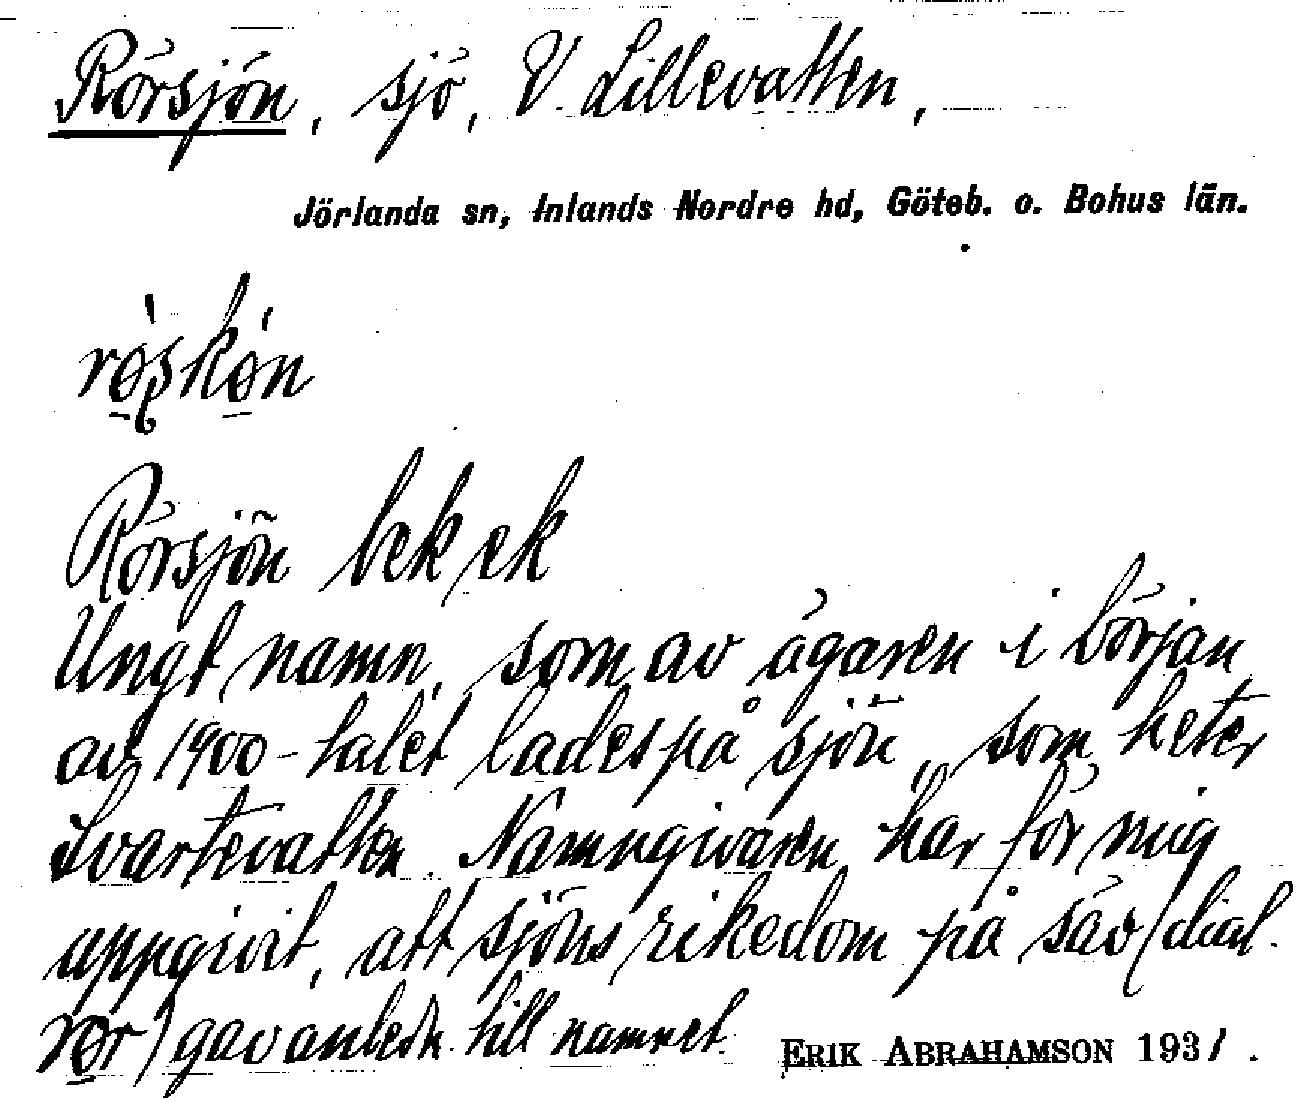 Rörsjön, sjö, V. Lillevatten,
Jörlanda sn, Inlands Nordre hd, Göteb. o. Bohus län.
Rörsjön bek ek
Ungt namn, som av ägaren i början
av 1900-talet lades på sjön, som heter
Svartevatten. Namngivaren har för mig
uppgivit, att sjöns rikedom på säv (dial.
rør) gav anledn. till namnet.
ERIK ABRAHAMSON 1931.